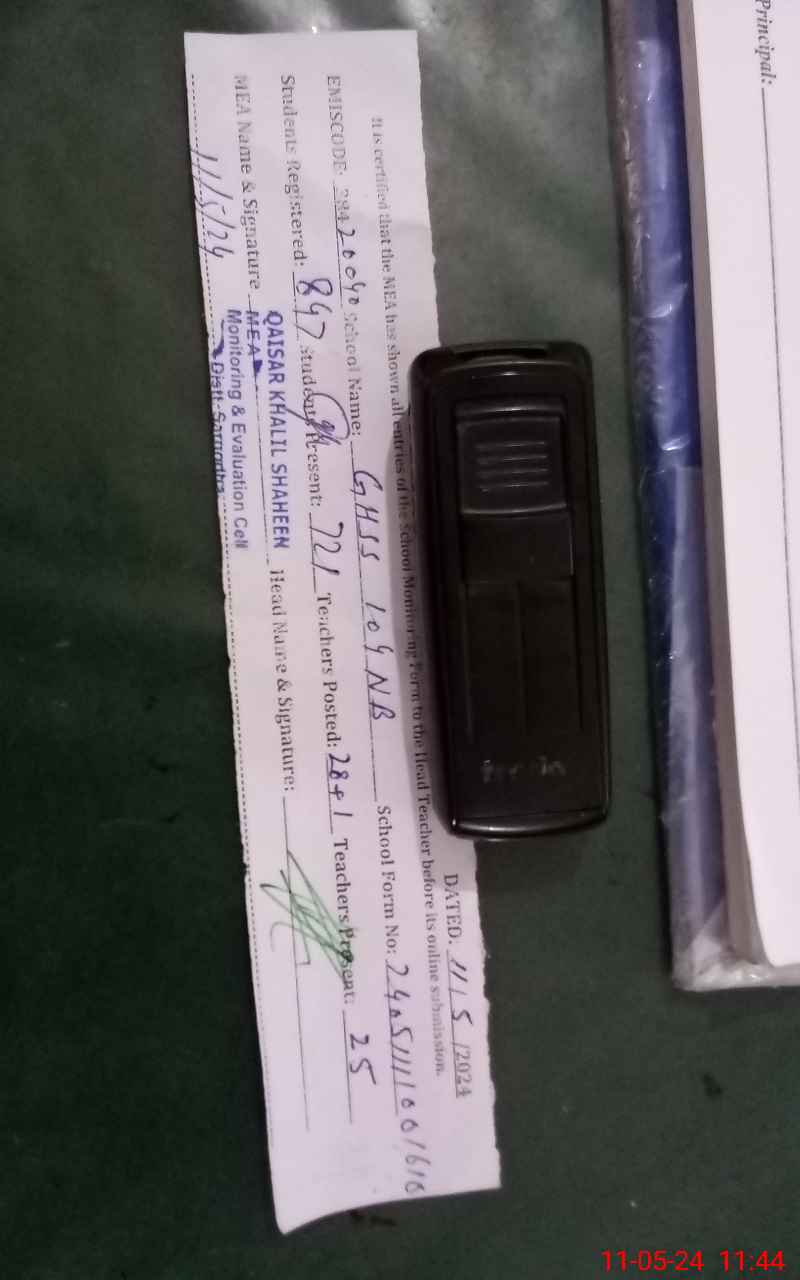 Principal:
DATED: 11/5/2024
It is certified that the MEA has shown all entries of the School Monitoring Form to the Head Teacher before its online submission.
EMISCODE: 38420040 School Name: GHSS 109 NB School Form No:
Students Registered: 847 Students Present: 721 Teachers Posted: 28+1 Teachers Present: 25
MEA Name & Signature Head Name & Signature:
QAISAR KHALIL SHAHEEN
MEA
Monitoring & Evaluation Cell
Distt. Sargodha
11/5/24
11-05-24 11:44